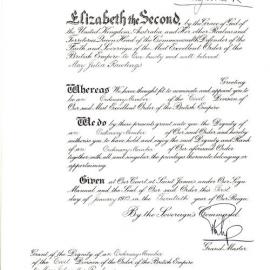 Elizabeth the Second, by the Grace of God of
the United Kingdom, Australia and Her other Realms and
Territories Queen, Head of the Commonwealth, Defender of the
Faith and Sovereign of the Most Excellent Order of the
British Empire to Our trusty and well beloved
Greeting
Whereas We have thought fit to nominate and appoint you to
be an Ordinary Member of the Civil Division of
Our said Most Excellent Order of the British Empire
We do by these presents grant unto you the Dignity of
an Ordinary Member of Our said Order and hereby
authorise you to have, hold and enjoy the said Dignity and Rank of
an Ordinary Member of Our aforesaid Order
together with all and singular the privileges thereunto belonging or
appertaining.
Given at Our Court at Saint James's under Our Sign
Manual and the Seal of Our said Order this First
day of January in the year of Our Reign
By the Sovereign's Command.
Grand Master
Grant of the Dignity of an Ordinary Member
of the Civil Division of the Order of the British Empire